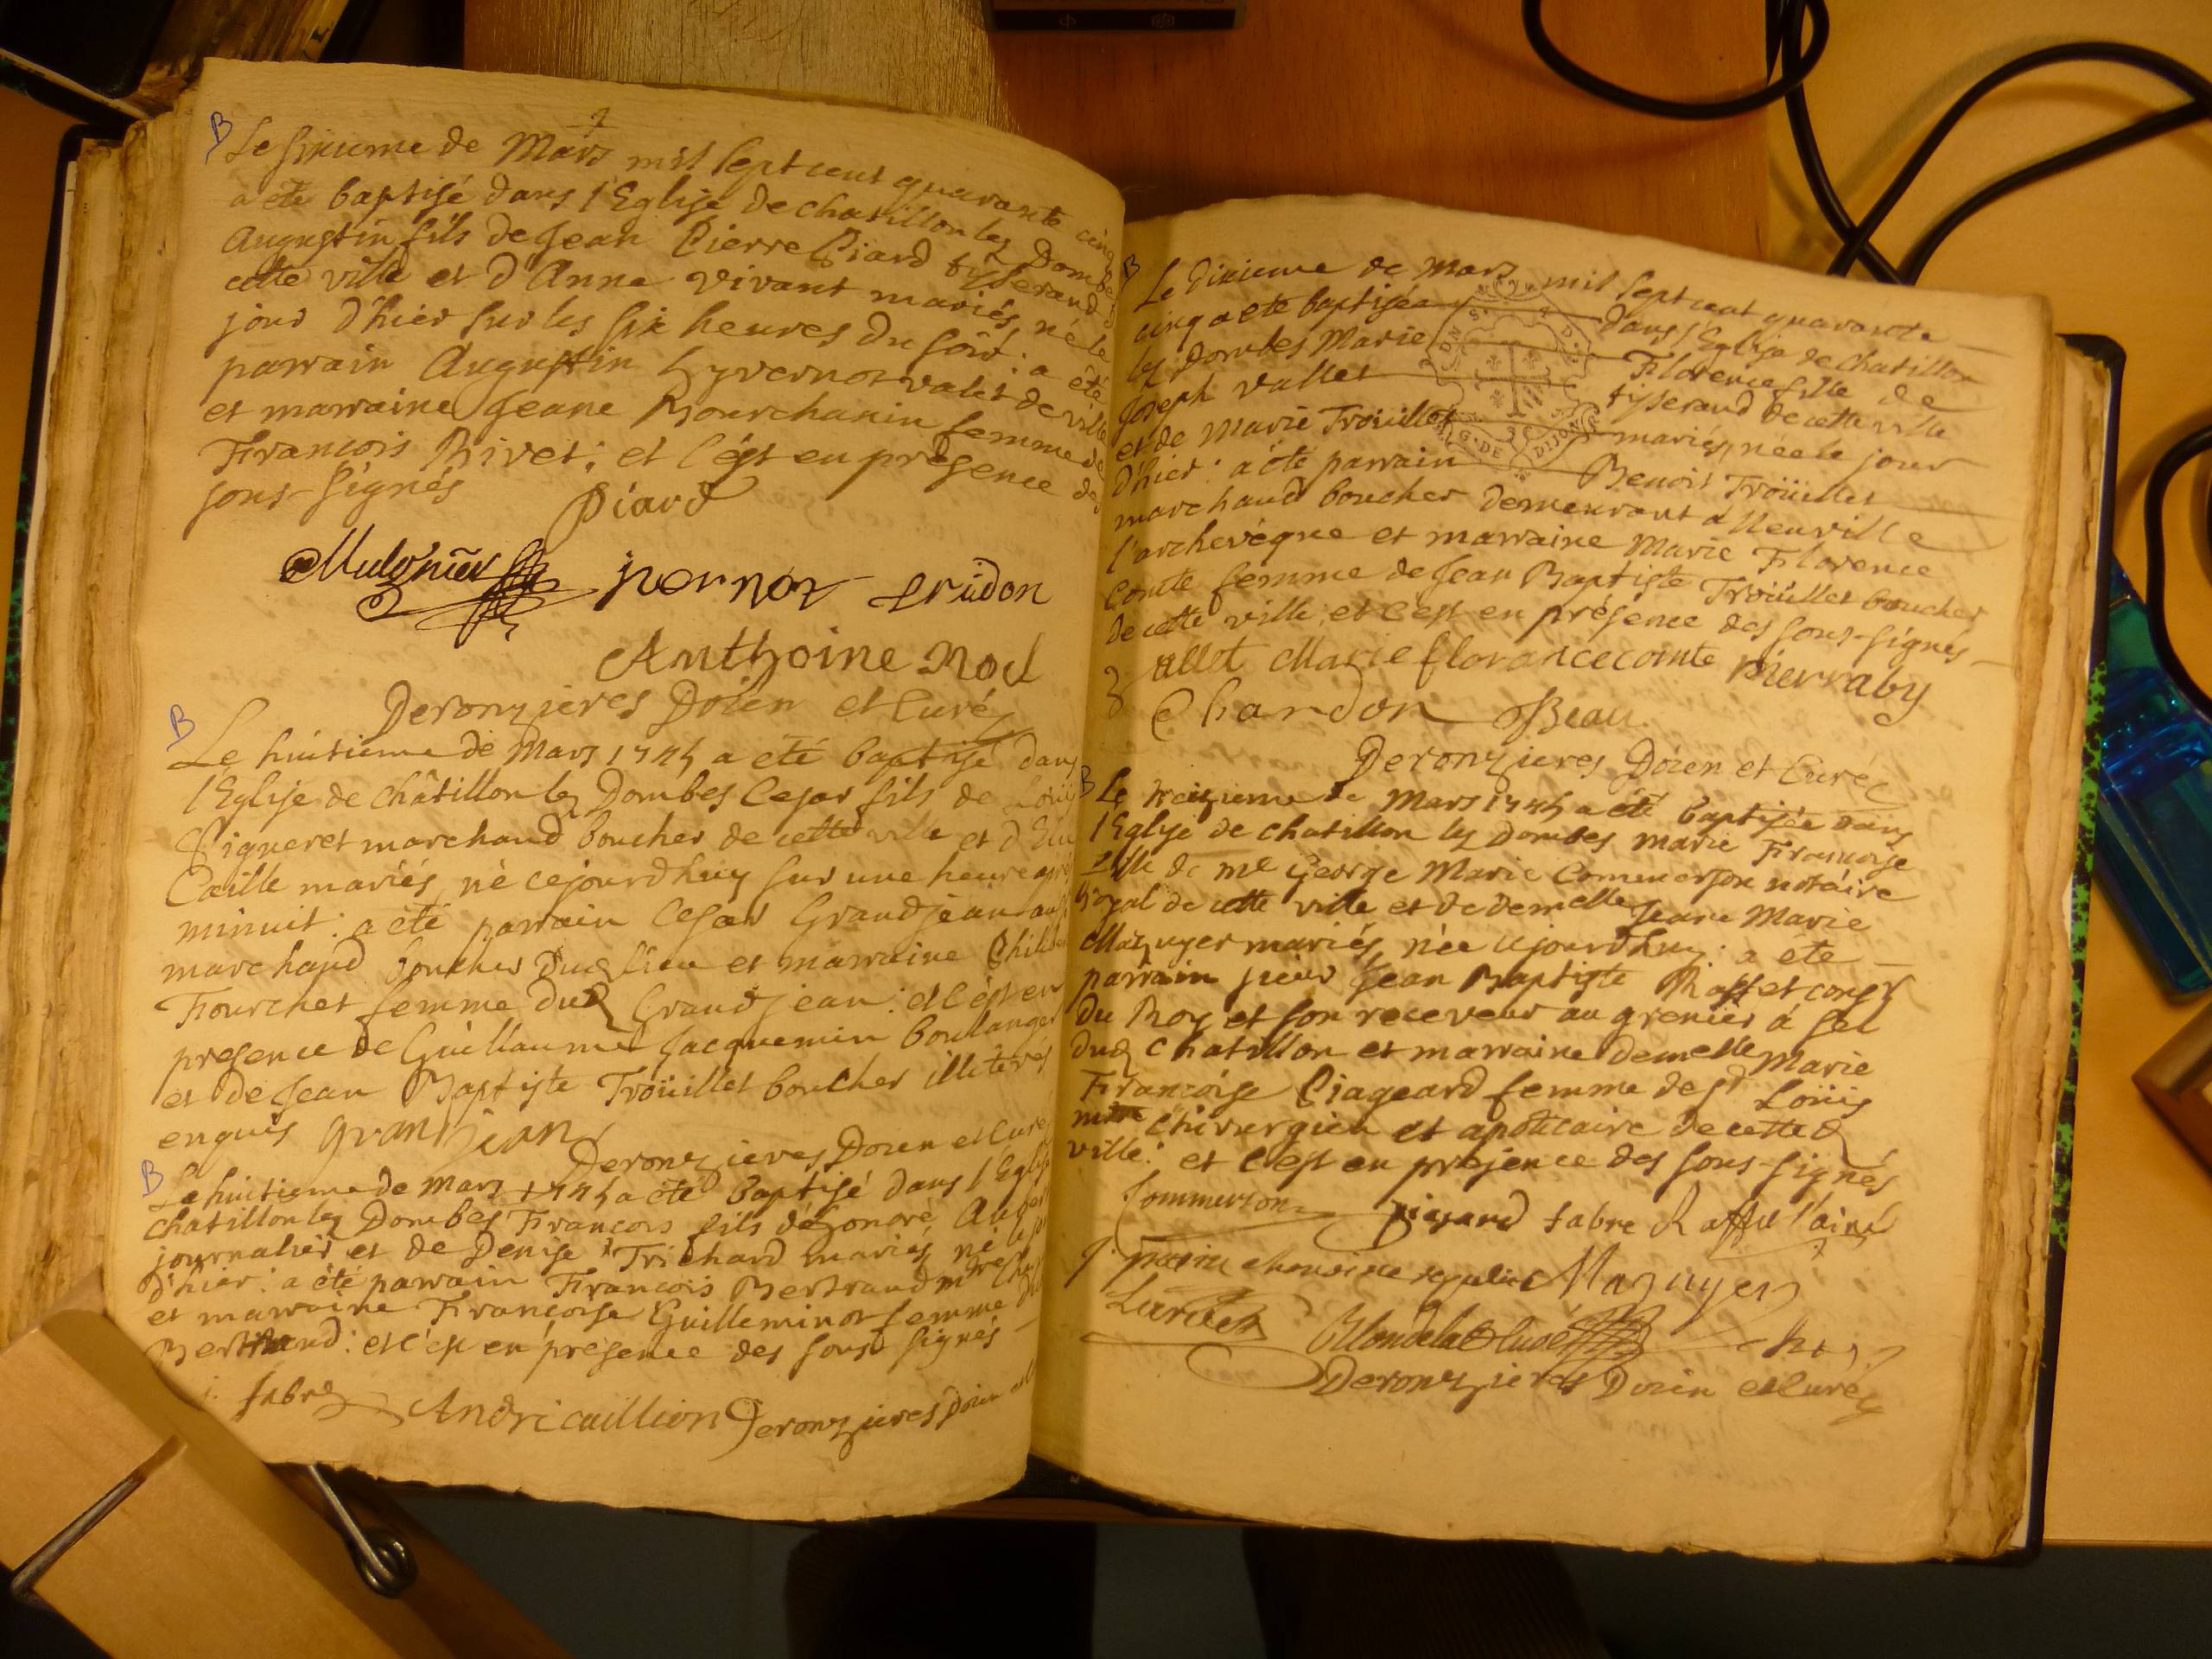 B
Le sixieme de Mars mil sept cent quarante cinq
a eté baptisé dans l'Eglise de chatillon les Dombes
Augustin fils de Jean Pierre Piard tisserand de
cette ville et d'Anne Vivant mariés, né le
jour d'hier sur les six heures du soir : a été
parrain Augustin hyvernot valet de ville
et marraine Jeane Bourchanin femme de
François Rivet ; et c'est en présence des
sous-signés Piard
Mulonier jvernoz
Anthoine Noel
Deronzieres Doïen et Curé
B
Le huitieme de Mars 1745 a été baptisé dans
l'Eglise de châtillon les Dombes Cesar fils de Loüis
Pigneret marchand boucher de cette ville et
Caille mariés, né cejourdhuy sur une heure après
minuit : a été parrain Cesar Grandjean aussi
marchand boucher dud lieu et marraine
Fourchet femme dud Grandjean : et c'est en
presence de Guillaume Jacquemin boulanger
et de Jean Baptiste Troüillet boucher illiterés
enquis granjean
Deronzieres Doïen et Curé
B
Le huitieme de Mars 1745 a été baptisé dans l'Eglise
chatillon les Dombes François fils d'honoré
journalier et de Denise Trichard mariés, né le jour
d'hier : a été parrain François Bertrand mtre
et marraine Françoise Guilleminot femme dud
Bertrand : et c'est en présence des sous signés
fabre Andricaillion Deronzieres Doïen et
B
Le dixieme de Mars mil sept cent quarante
cinq a eté baptisée dans l'Eglise de chatillon
les Dombes Marie Florence fille de
Joseph Vallet tisserand de cette ville
et de Marie Troüillet mariés, née le jour
d'hier : a été parrain Benoit Troüillet
marchand boucher demeurant à Neuville
l'archevêque et marraine Marie Florence
Comte femme de Jean Baptiste Troüillet boucher
de cette ville, et c'est en présence des sous-signés
allet Marie florance comte pierraby
Chardon Beau
Deronzieres Doïen et Curé
B
Le treizieme de Mars 1745 a été baptisée dans
l'Eglise de chatillon les Dombes marie Françoise
fille de me George Marie Commerson notaire
Royal de cette ville et de demelle Jeane Marie
Mazuyer mariés, née cejourdhuy : a eté
parrain sieur Jean Baptiste Raffet consr
du Roy et son receveur au grenier à sel
dud Chatillon et marraine demelle Marie
Françoise Piageard femme de sr Loüis
mtre chirurgien et apoticaire de cette d
ville : et c'est en présence des sous-signés
Commerson fabre Raffet l'aîné
Mazuyer
Deronzieres Doïen et Curé
DIJON